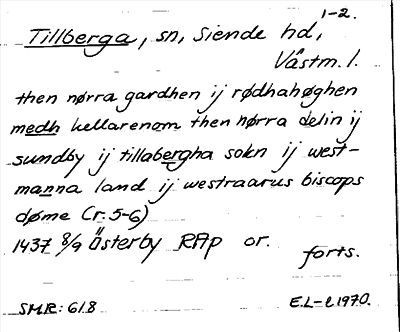 1-2.
Tillberga, sn, Siende hd,
Västm. l.
then nørra gardhen ij rødhahøghen
medh kellarenom then nørra delin ij
sundby ij tillabergha sokn ij west-
manna land ij westraarus biscops
døme (r. 5-6)
1437 8/9 Österby RAp or.
forts.
SMR: 618
E.L-l 1970.